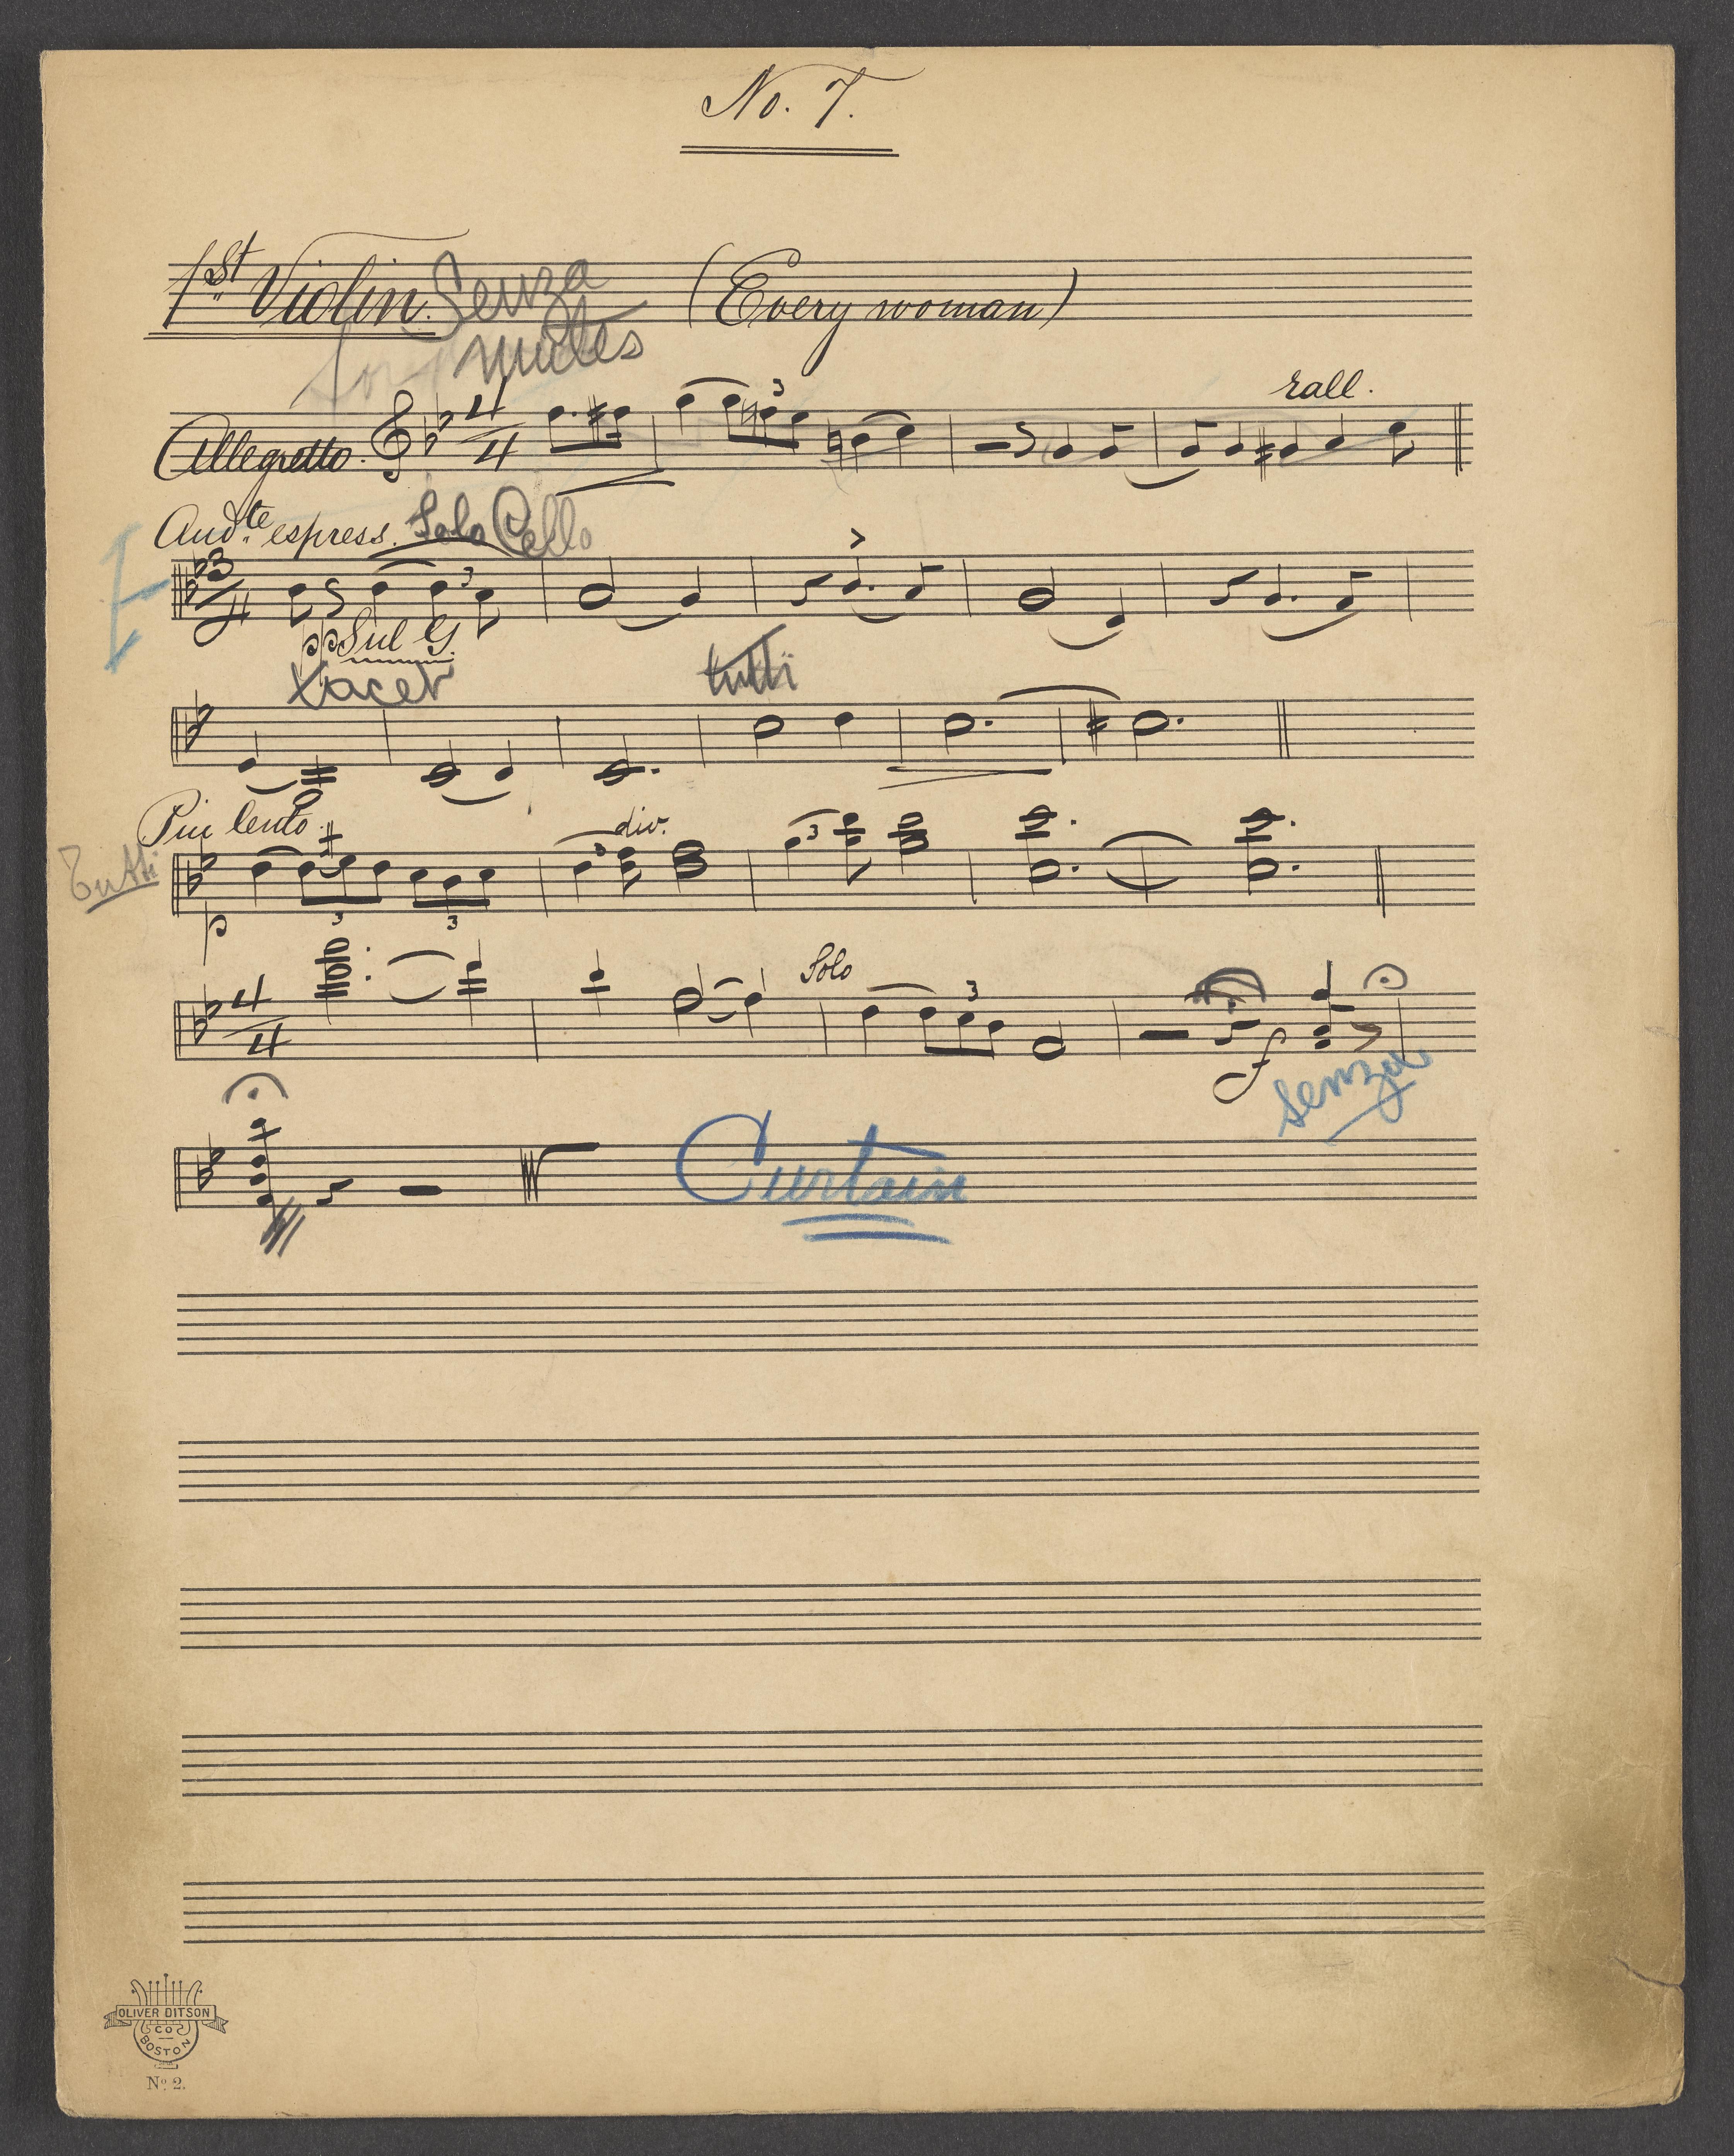 No. 7.
1st Violin. Senza (Every woman)
mutes
rall.
Allegretto. 4/4 3
Andte. espress. Solo Cello
3/4 3
pp Sul G.
tacet tutti
Piu lento. div.
Tutti 3 3
p 3 3
Solo
4/4 3
f
senza
Curtain
OLIVER DITSON
CO
BOSTON
No 2.